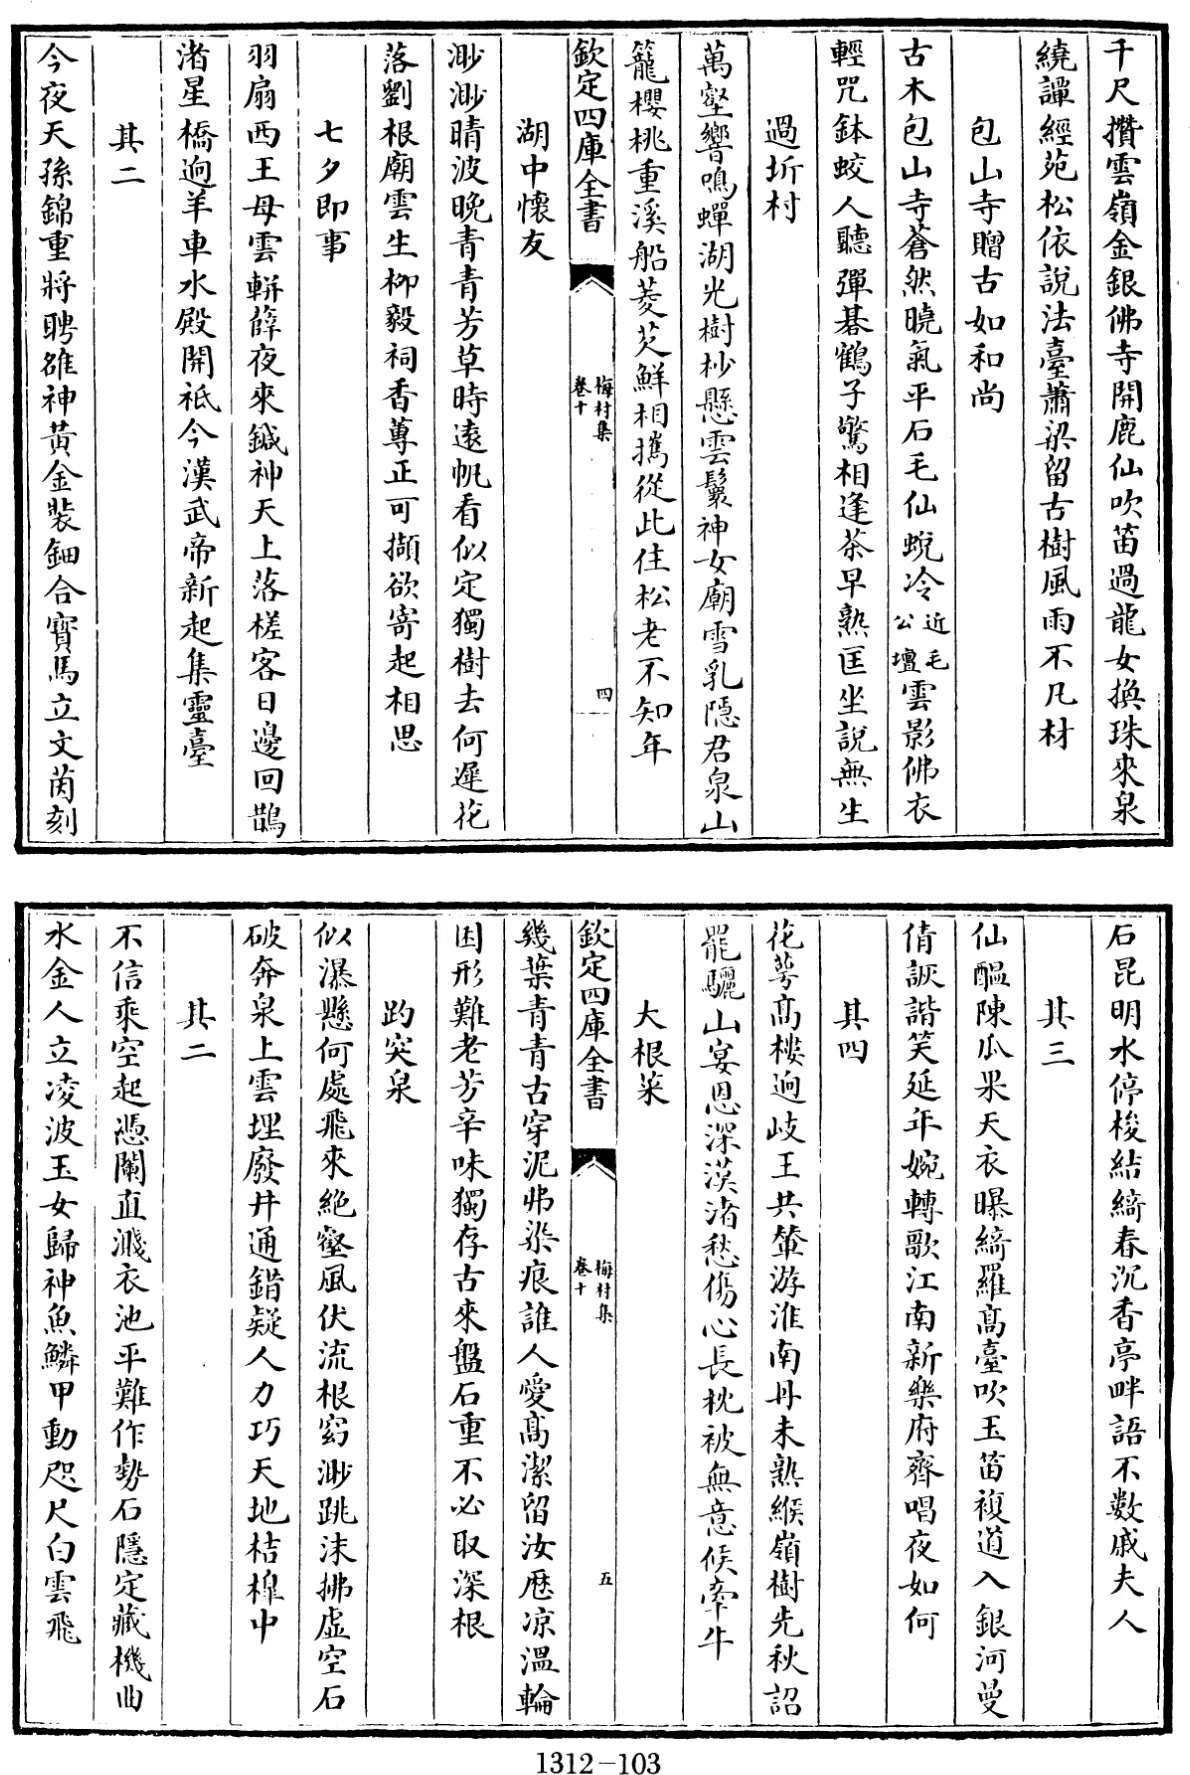 千尺攢雲嶺金銀佛寺開鹿仙吹笛過龍女換珠來泉
繞譚經苑松依說法臺蕭梁留古樹風雨不凡材
包山寺贈古如和尚
古木包山寺蒼然曉氣平石毛仙蛻冷近毛公壇雲影佛衣
輕咒鉢蛟人聽彈碁鶴子驚相逢茶早熟匡坐說無生
過圻村
萬壑響鳴蟬湖光樹杪懸雲鬟神女廟雪乳隱君泉山
籠櫻桃重溪船菱芡鮮相攜從此住松老不知年
欽定四庫全書
梅村集
卷十
四
湖中懷友
渺渺晴波晚青青芳草時遠帆看似定獨樹去何遲花
落劉根廟雲生柳毅祠香蓴正可擷欲寄起相思
七夕即事
羽扇西王母雲軿薛夜來鍼神天上落槎客日邊回鵲
渚星橋逈羊車水殿開祗今漢武帝新起集靈臺
其二
今夜天孫錦重將聘雒神黃金裝鈿合寶馬立文茵刻
石昆明水停梭結綺春沉香亭畔語不數戚夫人
其三
仙醞陳瓜果天衣曝綺羅高臺吹玉笛複道入銀河曼
倩詼諧笑延年婉轉歌江南新樂府齊唱夜如何
其四
花萼高樓逈岐王共輦游淮南丹未熟緱嶺樹先秋詔
罷驪山宴恩深漢渚愁傷心長枕被無意候牽牛
大根菜
欽定四庫全書
梅村集
卷十
五
幾葉青青古穿泥弗染痕誰人愛高潔留汝歷凉溫輪
囷形難老芳辛味獨存古來盤石重不必取深根
趵突泉
似瀑懸何處飛來絕壑風伏流根窈渺跳沫拂虛空石
破奔泉上雲埋廢井通錯疑人力巧天地桔橰中
其二
不信乘空起憑闌直濺衣池平難作勢石隱定藏機曲
水金人立凌波玉女歸神魚鱗甲動咫尺白雲飛
1312-103